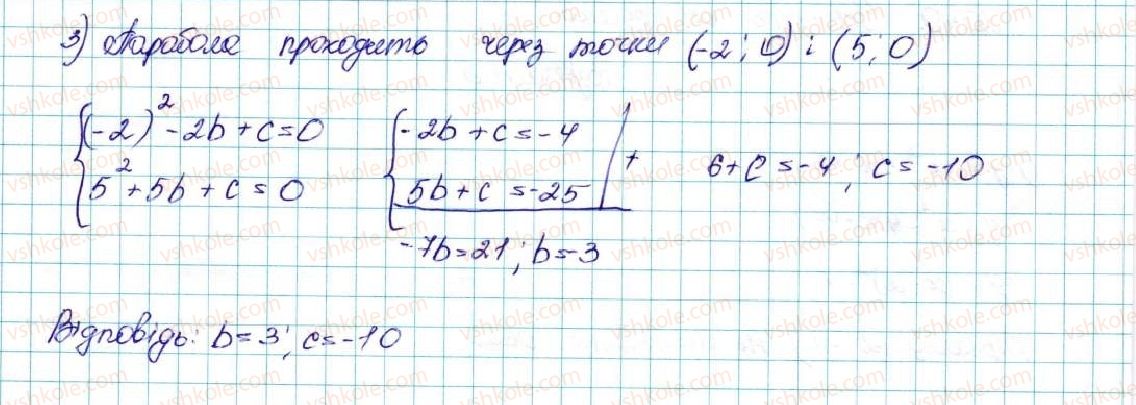 3) Парабола проходить через точки (-2; 0) і (5; 0)
{(-2)² - 2b + c = 0 {-2b + c = -4
5² + 5b + c = 0 5b + c = -25 + 6 + c = -4; c = -10
-7b = 21; b = -3
Відповідь: b = 3; c = -10